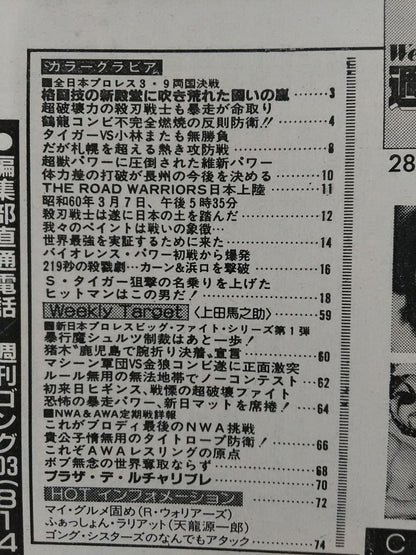 カラーグラビア
■全日本プロレス3・9両国決戦
格闘技の新殿堂に吹き荒れた闘いの嵐 3
超破壊力の殺刃戦士も暴走が命取り
鶴龍コンビ不完全燃焼の反則防衛!! 4
タイガーVS小林またも無勝負
だが札幌を超える熱き攻防戦 8
超獣パワーに圧倒された維新パワー
体力差の打破が長州の今後を決める 10
THE ROAD WARRIORS日本上陸 11
昭和60年3月7日、午後5時35分
殺刃戦士は遂に日本の土を踏んだ 12
我々のペイントは戦いの象徴…
世界最強を実証するために来た 14
バイオレンス・パワー初戦から爆発
219秒の殺戮劇…カーン&浜口を撃破 16
S・タイガー狙撃の名乗りを上げた
ヒットマンはこの男だ! 18
Weekly Target〈上田馬之助〉 59
■新日本プロレスビッグ・ファイト・シリーズ第1弾
暴行魔シュルツ制裁はあと一歩!
猪木"鹿児島で腕折り決着"宣言 60
マシーン軍団VS金狼コンビ遂に正面激突
ルール無用の無法地帯でノーコンテスト 62
初来日ヒギンス、戦慄の超破壊ファイト
恐怖の暴走パワー、新日マットを席捲! 64
■NWA&AWA定期戦詳報
これがブロディ最後のNWA挑戦
貴公子情無用のタイトロープ防衛! 66
これぞAWAレスリングの原点
ボブ無念の世界奪取ならず 68
プラザ・デ・ルチャリブレ 70
HOT インフォメーション 72
マイ・グルメ固め(R・ウォリアーズ)
ふぁっしょん・ラリアット(天龍源一郎)
ゴング・シスターズのなんでもアタック 74
●編集部直通電話
週刊ゴング03(814
We
週
28
C